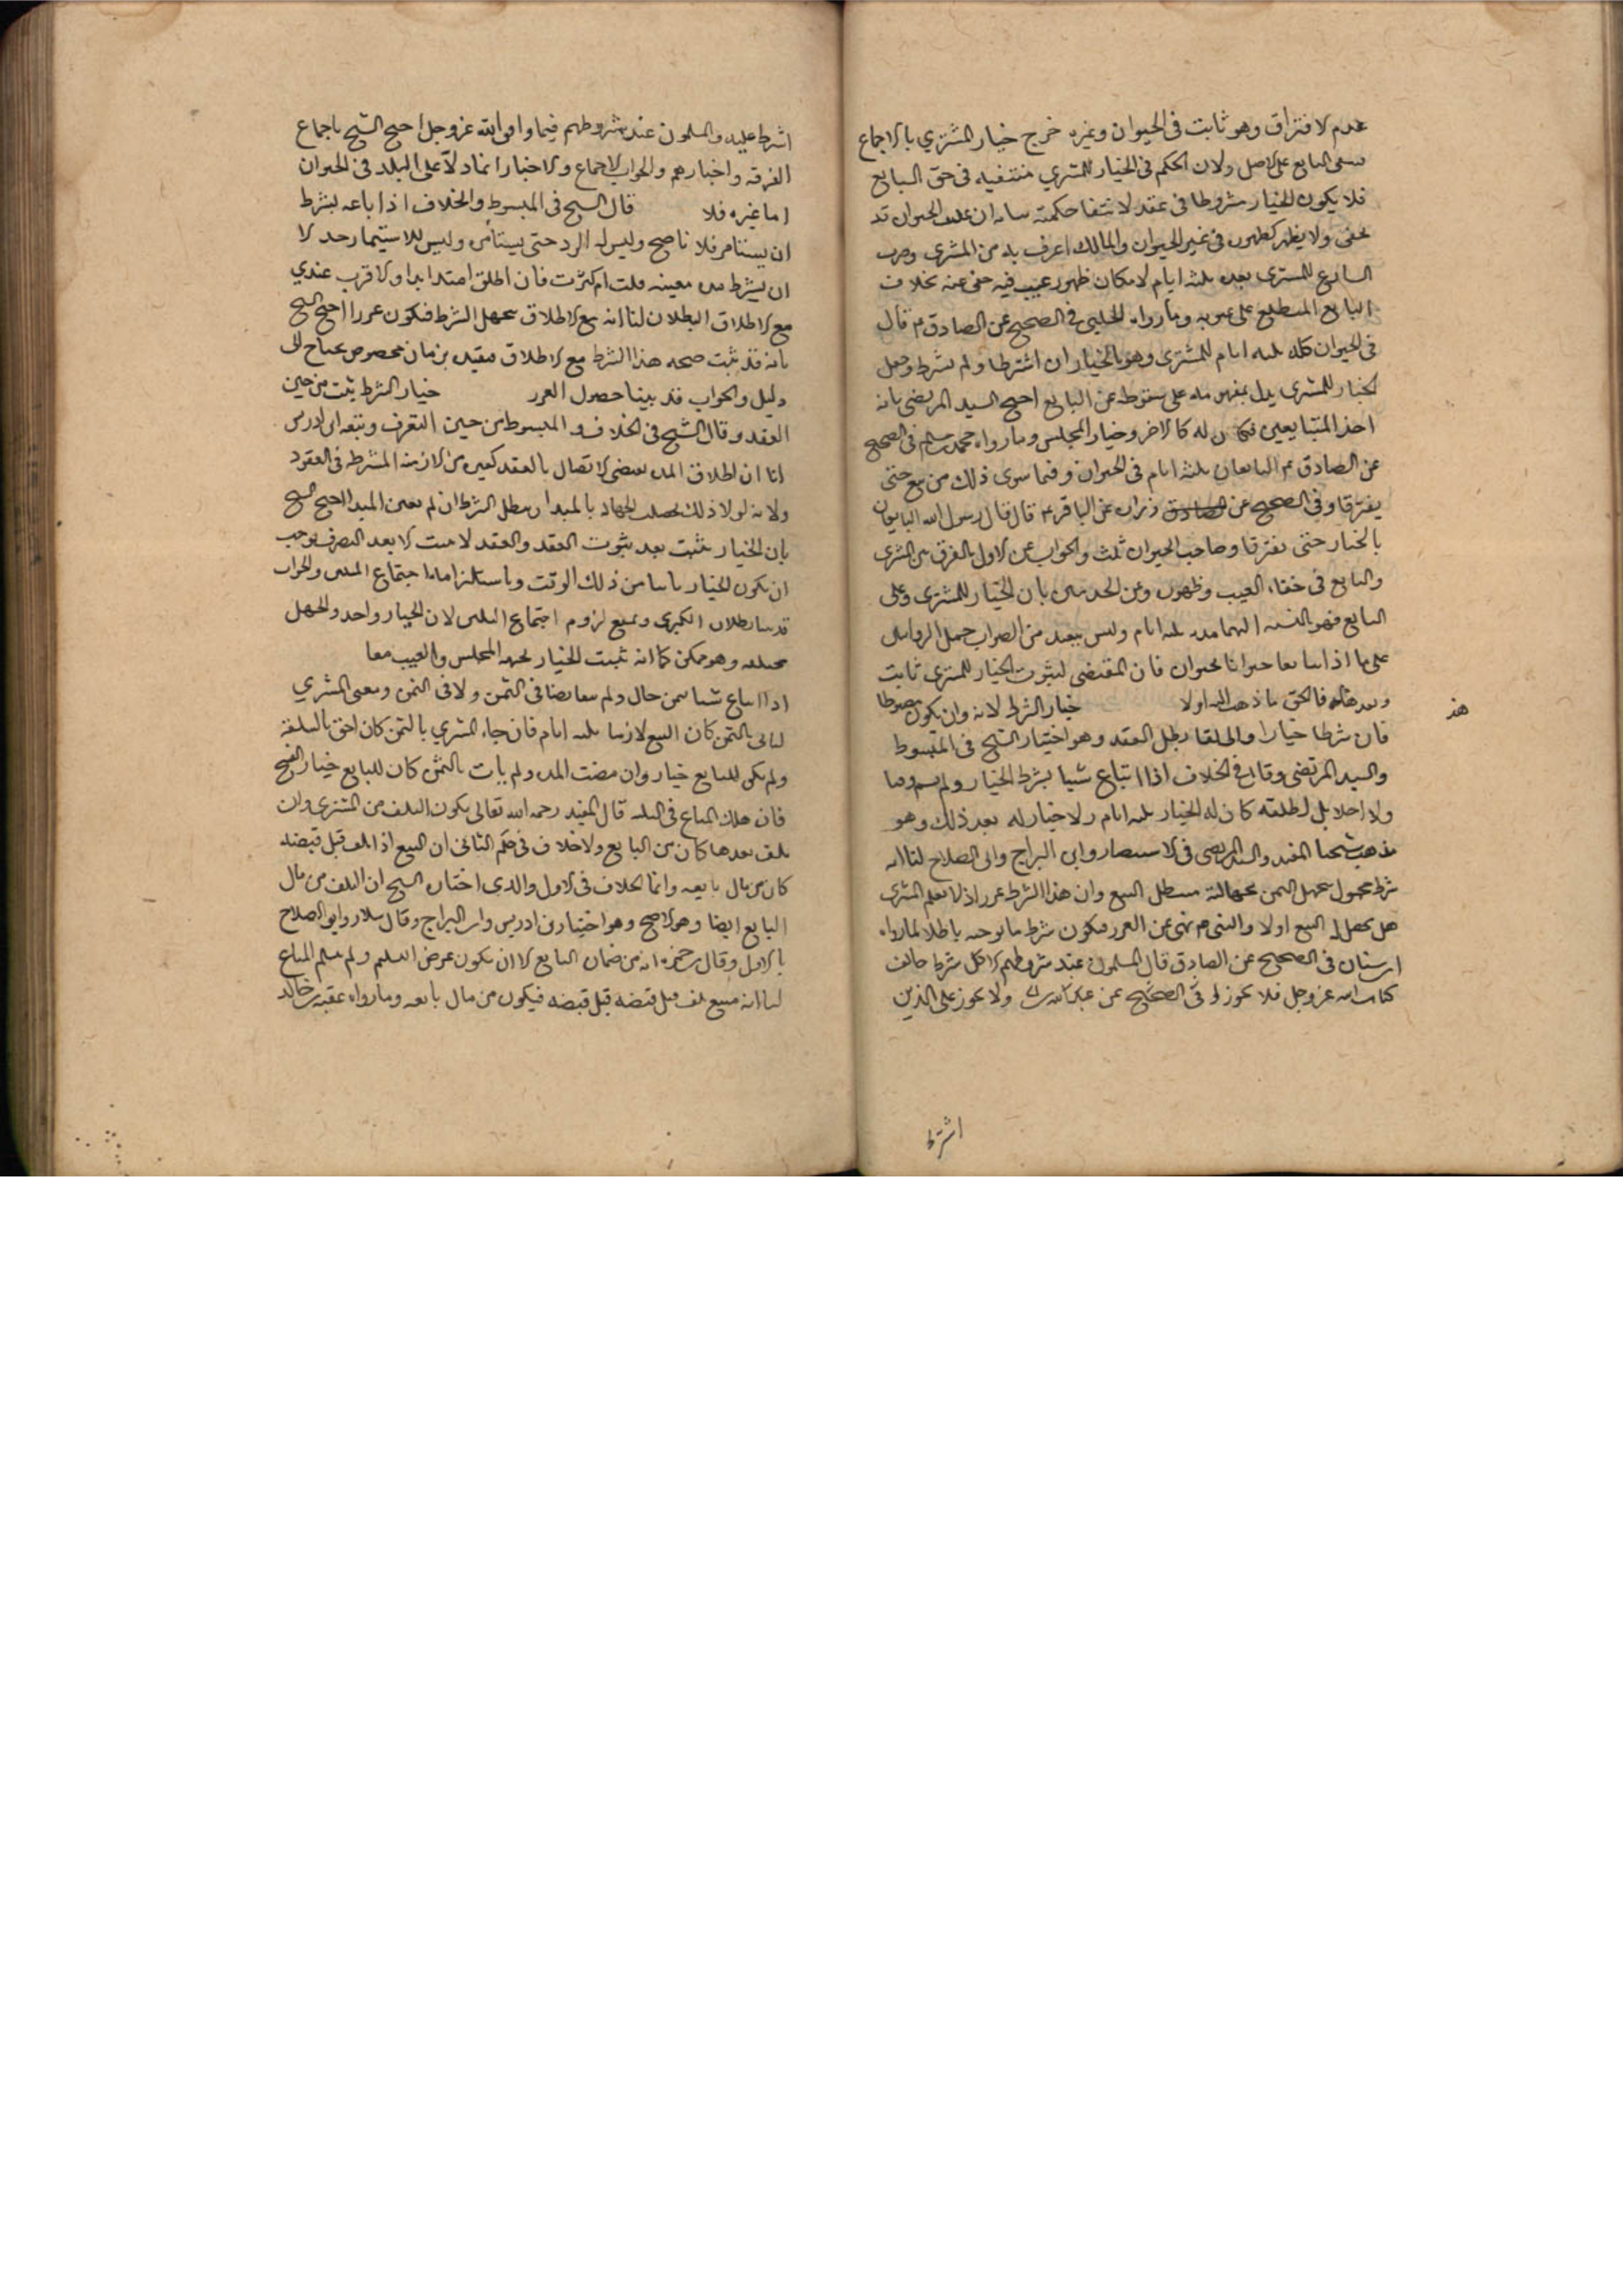 عدم الافتراق وهو ثابت فى الحيوان وغيره خرج خيار المشتري بالاجماع
البايع على الاصل ولان الحكم فى الخيار للمشتري منتفيه فى حق البايع
فلا يكون الخيار مشروطا فى عقد لانتفا حكمته ان الحيوان قد
يخفى ولا يظهر كظهوره فى غير الحيوان والمالك اعرف به من المشترى
البايع للمشترى بعد ثلثه ايام لامكان ظهور عيب فيه خفى عنه بخلاف
البايع المتطلع على عيوبه وما رواه الحلبى فى الصحيح عن الصادق ع قال
فى الحيوان كله ثلثه ايام للمشترى وهو بالخيار ان اشترطا ولم يشترط وجعل
الخيار للمشترى يدل بمفهومه على سقوطه عن البايع احتج السيد المرتضى بانه
احد المتبايعين فكان له كالاخر وخيار المجلس وما رواه محمد بن مسلم فى الصحيح
عن الصادق ع البايعان ثلثه ايام فى الحيوان وفيما سوى ذلك من بيع حتى
يفترقا وفى الصحيح عن زراره عن الباقر ع قال قال رسول الله البايعان
بالخيار حتى يفترقا وصاحب الحيوان ثلث والجواب عن الاول بالفرق بين المشترى
والبايع فى خفاء العيب وظهوره وعن الحديثين بان الخيار للمشترى وعلى
البايع فهو بالنسبه اليهما مده ثلثه ايام وليس ببعيد من الصواب حمل الروايتين
على ما اذا تبايعا حيوانا بحيوان فان المقتضى لثبوت الخيار للمشترى ثابت
فالحق ما ذهب اليه اولا خيار الشرط لابد وان يكون مضبوطا
هذ
فان شرطا خيارا واطلقا بطل العقد وهو اختيار الشيخ فى المبسوط
والسيد المرتضى وقال فى الخلاف اذا ابتاع شيا بشرط الخيار ولم يسم وقتا
ولا اجلا بل اطلقه كان له الخيار ثلثه ايام ولا خيار له بعد ذلك وهو
مذهب شيخنا المفيد والسيد المرتضى فى الانتصار وابن البراج وابى الصلاح لنا انه
شرط مجهول الثمن بجهالته فيبطل البيع وان هذا الشرط غرر اذ لا يعلم المشترى
هل يحصل له البيع اولا والنبى ص نهى عن الغرر فيكون شرط ما يوجبه باطلا لما رواه
ابن سنان فى الصحيح عن الصادق قال المسلمون عند شروطهم الا كل شرط خالف
كتاب الله عز وجل فلا يجوز وفى الصحيح عن عبد الله بن ولا يجوز على الذين
اشرط
اشرط عليه والمسلمون عند شروطهم فيما وافق الله عز وجل احتج الشيخ باجماع
الفرقه واخبارهم والجواب الاجماع والاخبار انما دلا على الثلثه فى الحيوان
اما غيره فلا قال الشيخ فى المبسوط والخلاف اذا باعه بشرط
ان يستامر فلانا صح وليس له الرد حتى يستامر وليس للاستيمار حد الا
ان يشرط مده معينه قلت ام كثرت فان اطلق امتد ابدا والاقرب عندي
مع الاطلاق البطلان لنا انه مع الاطلاق يجهل الشرط فيكون غررا احتج الشيخ
بانه قد ثبت صحه هذا الشرط مع الاطلاق بزمان مخصوص يحتاج الى
دليل والجواب قد بينا حصول الغرر خيار الشرط يثبت من حين
العقد وقال الشيخ فى الخلاف و المبسوط من حين التفرق وتبعه ابن ادريس
لنا ان اطلاق المده يقتضى الاتصال بالعقد كغيره من الازمنه المشترطه فى العقود
ولانه لولا ذلك لحصلت الجهاله بالمبدا فيبطل الشرط ان لم يعين المبدا احتج الشيخ
بان الخيار يثبت بعد ثبوت العقد والعقد لا يثبت الا بعد التفرق فوجب
ان يكون الخيار ثابتا من ذلك الوقت وباستلزامه اجتماع المثلين والجواب
قد بينا بطلان الكبرى ونمنع لزوم اجتماع المثلين لان الخيار واحد والجهل
مختلفه وهو ممكن كما انه ثبت الخيار لجهه المجلس والعيب معا
اذا ابتاع شيا بثمن حال ولم يتقابضا فى الثمن ولا فى المثمن ومضى المشتري
لياتى بالثمن كان البيع لازما ثلثه ايام فان جاء المشتري بالثمن كان احق بالسلعة
ولم يكن للبايع خيار وان مضت المده ولم يات بالثمن كان للبايع خيار الفسخ
فان هلك المتاع فى الثلثه قال المفيد رحمه الله تعالى يكون التلف من المشترى وان
تلف بعدها كان من البايع ولا خلاف فى حكم الثانى ان المبيع اذا تلف قبل قبضه
كان من مال بايعه وانما الخلاف فى الاول والذى اختاره الشيخ ان التلف من مال
البايع ايضا وهو الاصح وهو اختيار ابن ادريس وابن البراج وقال سلار وابو الصلاح
بالاول وقال بن حمزه انه من ضمان البايع الا ان يكون عرض التسليم ولم يتسلم المتاع
لنا انه مبيع تلف قبل قبضه قبل قبضه فيكون من مال بايعه وما رواه عقبه بن خالد